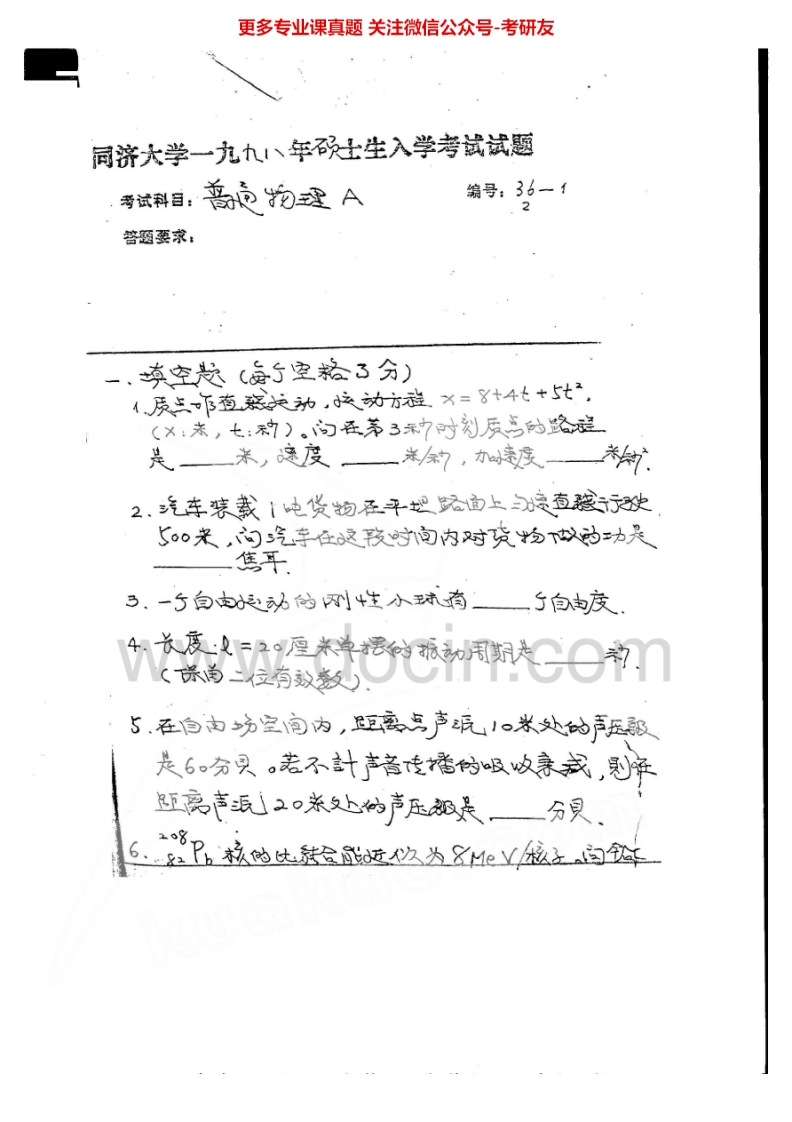 更多专业课真题 关注微信公众号-考研友
同济大学一九九八年硕士生入学考试试题
考试科目：普通物理 A 编号：36-1
2
答题要求：
一、填空题（每个空格3分）
1. 质点作直线运动，运动方程 x=8+4t+5t²，
（x：米，t：秒）。问在第3秒时刻质点的路程
是____米，速度____米/秒，加速度____米/秒².
2. 汽车装载1吨货物在平坦路面上匀速直线行驶
500米，问汽车在这段时间内对货物做的功是
____焦耳.
3. 一个自由运动的刚性小球有____个自由度.
4. 长度 l=20厘米单摆的振动周期是____秒
（保留二位有效数）.
www.docin.com
5. 在自由场空间内，距离点声源10米处的声压级
是60分贝。若不計声音传播的吸收衰减，则在
距离声源20米处的声压级是____分贝.
6. ²⁰⁸₈₂Pb 核的比结合能近似为8MeV/核子。问铅